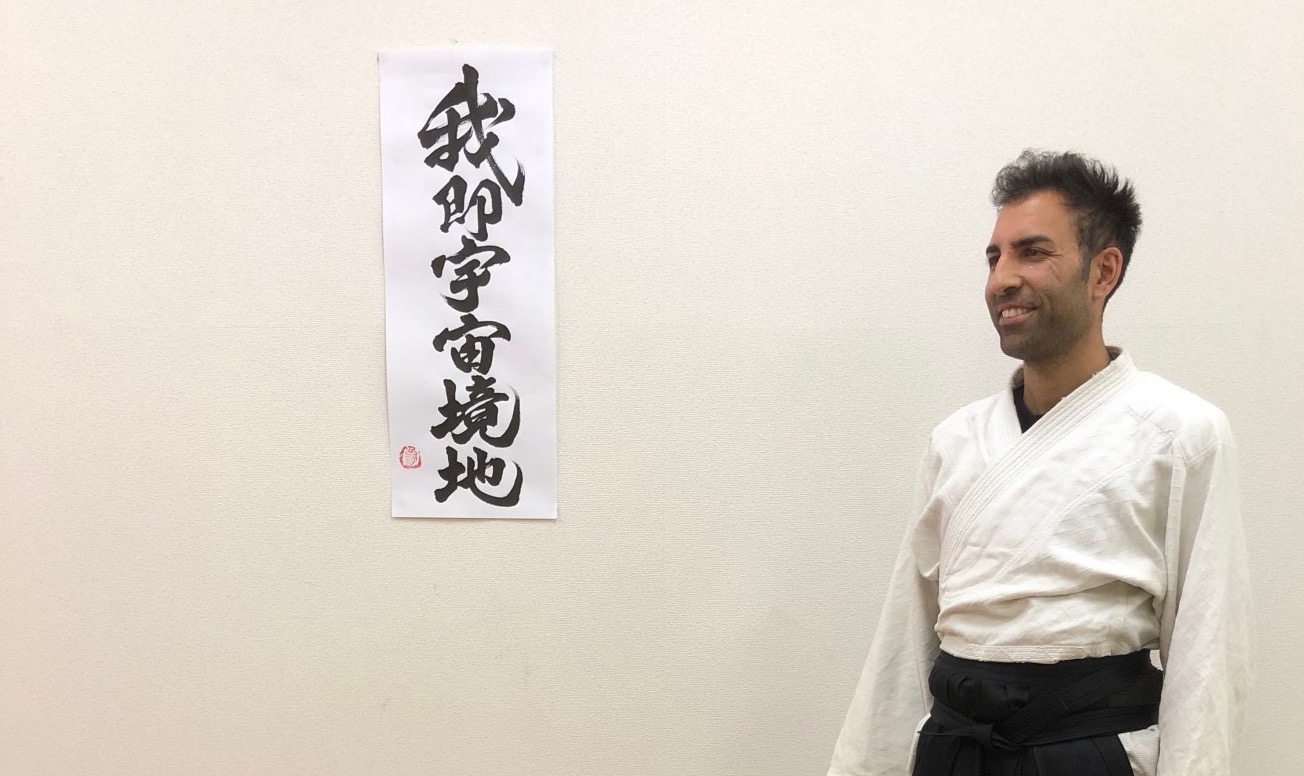 我即宇宙境地